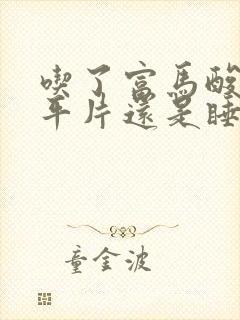 喫了富馬酸
平片還是睡
童金波